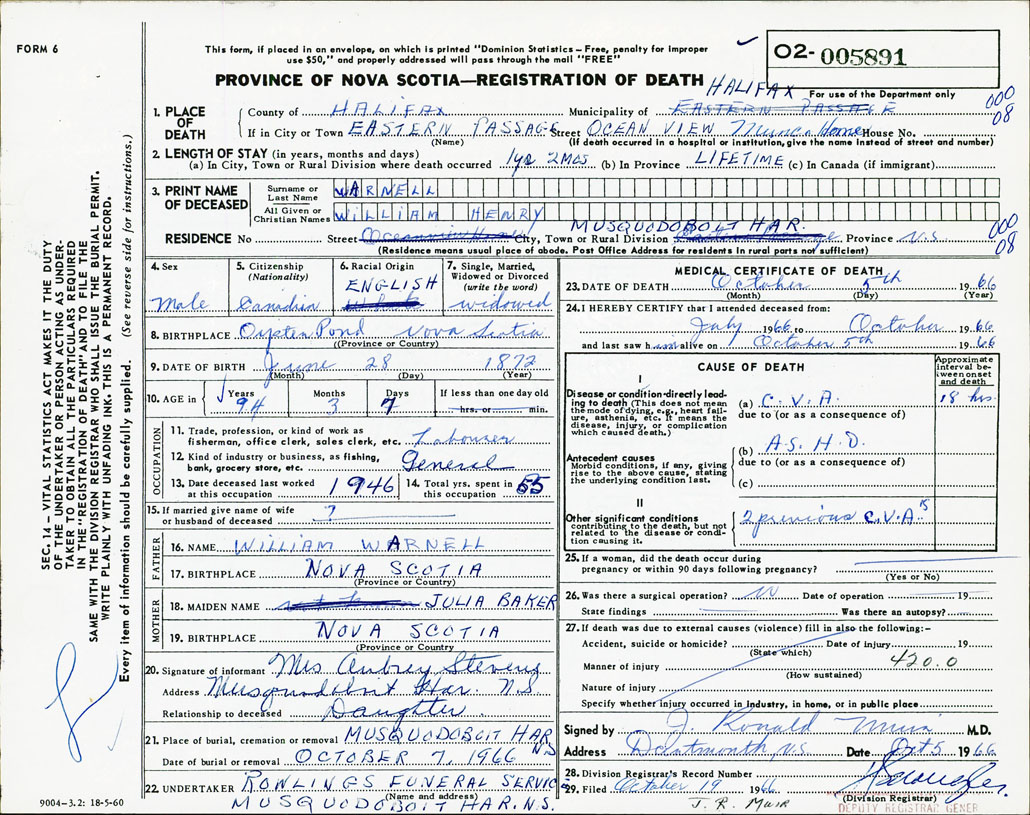 FORM 6
This form, if placed in an envelope, on which is printed "Dominion Statistics – Free, penalty for improper
use $50," and properly addressed will pass through the mail "FREE"
02- 005891
PROVINCE OF NOVA SCOTIA—REGISTRATION OF DEATH
For use of the Department only
HALIFAX
000
08
1. PLACE OF DEATH
County of HALIFAX Municipality of EASTERN PASSAGE
If in City or Town EASTERN PASSAGE Street OCEAN VIEW Munc. Home House No.
(Name) (If death occurred in a hospital or institution, give the name instead of street and number)
2. LENGTH OF STAY (in years, months and days)
(a) In City, Town or Rural Division where death occurred 1yr 2mos (b) In Province LIFETIME (c) In Canada (if immigrant)
3. PRINT NAME OF DECEASED
Surname or Last Name WARNELL
All Given or Christian Names WILLIAM HENRY
MUSQUODOBOIT HAR.
000
08
RESIDENCE No Street City, Town or Rural Division Province N.S
(Residence means usual place of abode. Post Office Address for residents in rural parts not sufficient)
4. Sex
Male
5. Citizenship
(Nationality)
Canadian
6. Racial Origin
ENGLISH
7. Single, Married, Widowed or Divorced
(write the word)
widowed
8. BIRTHPLACE Oyster Pond Nova Scotia
(Province or Country)
9. DATE OF BIRTH June 28 1872
(Month) (Day) (Year)
10. AGE in Years Months Days If less than one day old
94 3 7 hrs. or min.
OCCUPATION
11. Trade, profession, or kind of work as
fisherman, office clerk, sales clerk, etc. Labourer
12. Kind of industry or business, as fishing,
bank, grocery store, etc. General
13. Date deceased last worked at this occupation 1946
14. Total yrs. spent in this occupation 55
15. If married give name of wife
or husband of deceased ?
FATHER
16. NAME WILLIAM WARNELL
17. BIRTHPLACE NOVA SCOTIA
(Province or Country)
MOTHER
18. MAIDEN NAME JULIA BAKER
19. BIRTHPLACE NOVA SCOTIA
(Province or Country)
20. Signature of informant Mrs Aubrey Stevens
Address Musquodoboit Har. N.S
Relationship to deceased Daughter
21. Place of burial, cremation or removal MUSQUODOBOIT HAR N.S
Date of burial or removal OCTOBER 7, 1966
22. UNDERTAKER ROWLINGS FUNERAL SERVICE
(Name and address)
MUSQUODOBOIT HAR. N.S.
MEDICAL CERTIFICATE OF DEATH
23. DATE OF DEATH October 5th 1966
(Month) (Day) (Year)
24. I HEREBY CERTIFY that I attended deceased from:
July 1966 to October 1966
and last saw him alive on October 5th 1966
CAUSE OF DEATH
Approximate interval between onset and death
I
Disease or condition directly leading to death (This does not mean the mode of dying, e.g., heart failure, asthenia, etc. It means the disease, injury, or complication which caused death.)
(a) C.V.A. 18 hrs.
due to (or as a consequence of)
(b) A.S.H.D.
Antecedent causes
Morbid conditions, if any, giving rise to the above cause, stating the underlying condition last.
due to (or as a consequence of)
(c)
II
Other significant conditions contributing to the death, but not related to the disease or condition causing it.
2 previous C.V.A's
25. If a woman, did the death occur during
pregnancy or within 90 days following pregnancy?
(Yes or No)
26. Was there a surgical operation? Date of operation 19
State findings Was there an autopsy?
27. If death was due to external causes (violence) fill in also the following:–
Accident, suicide or homicide? Date of injury 19
(State which)
Manner of injury 420.0
(How sustained)
Nature of injury
Specify whether injury occurred in industry, in home, or in public place
Signed by J. Ronald Muir M.D.
Address Dartmouth N.S. Date Oct 5 1966
28. Division Registrar's Record Number
29. Filed October 19 1966
(Division Registrar)
J. R. Muir
DEPUTY REGISTRAR GENER
SEC. 14 – VITAL STATISTICS ACT MAKES IT THE DUTY
OF THE UNDERTAKER OR PERSON ACTING AS UNDERTAKER
TO OBTAIN ALL THE PARTICULARS REQUIRED
IN THE "REGISTRATION OF DEATH" AND TO FILE THE
SAME WITH THE DIVISION REGISTRAR WHO SHALL ISSUE THE BURIAL PERMIT.
WRITE PLAINLY WITH UNFADING INK. THIS IS A PERMANENT RECORD.
Every item of information should be carefully supplied. (See reverse side for instructions.)
9004-3.2: 18-5-60